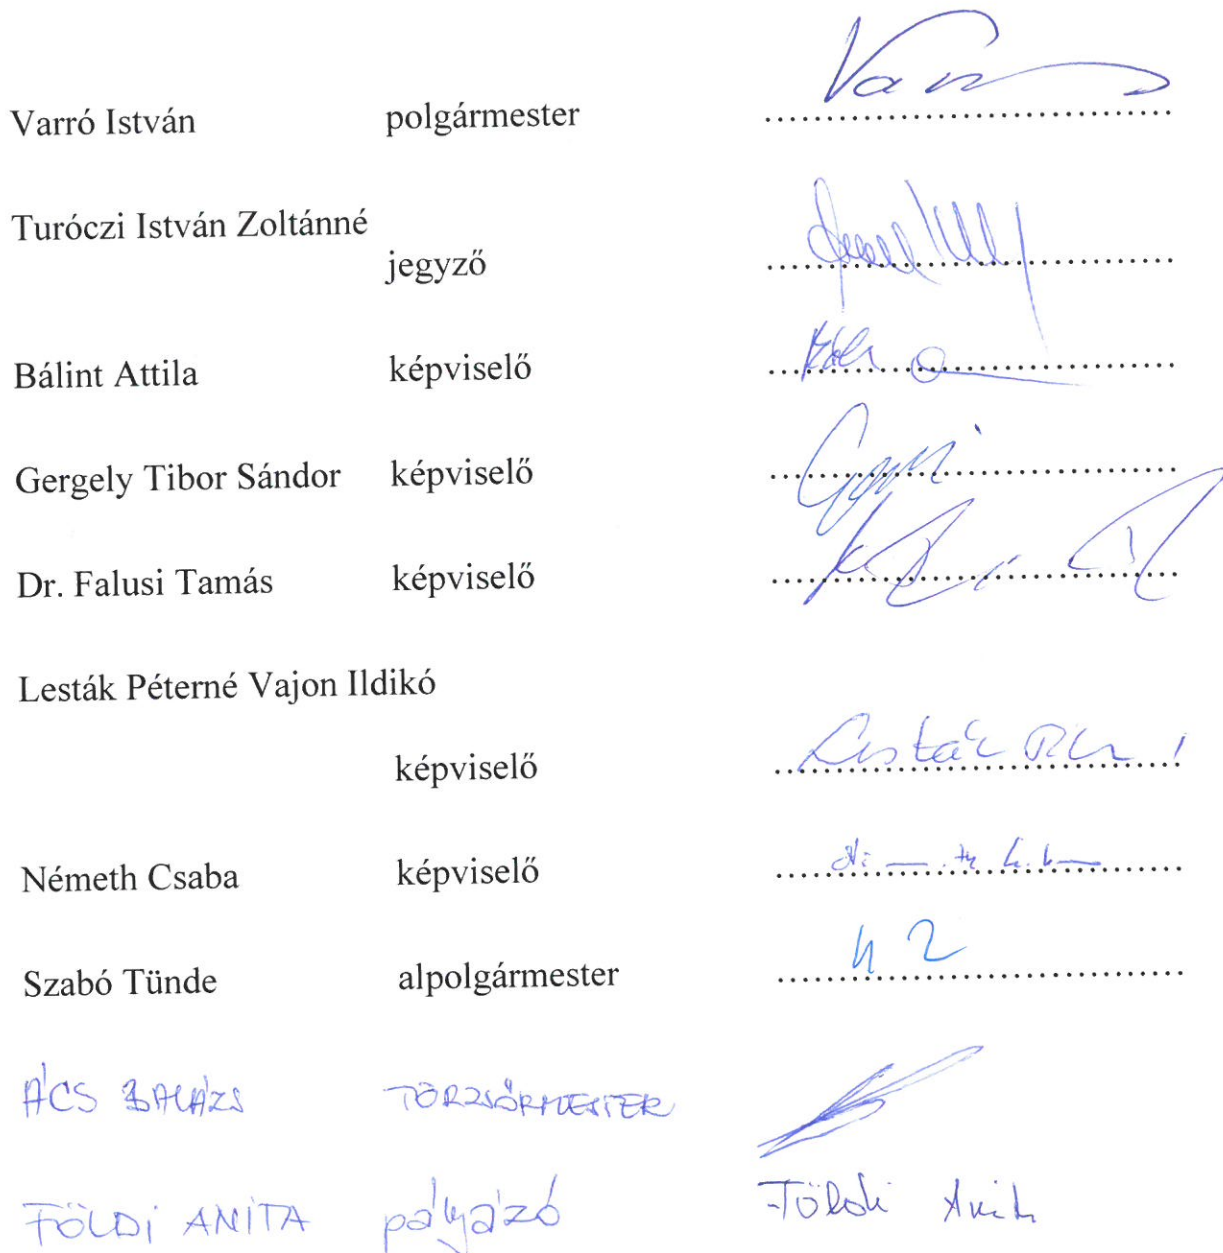 Varró István polgármester
Turóczi István Zoltánné
jegyző
Bálint Attila képviselő
Gergely Tibor Sándor képviselő
Dr. Falusi Tamás képviselő
Lesták Péterné Vajon Ildikó
képviselő Lesták
Németh Csaba képviselő
Szabó Tünde alpolgármester
ÁCS BALÁZS TÖRZSŐRMESTER
FÖLDI ANITA pályázó Földi Anita